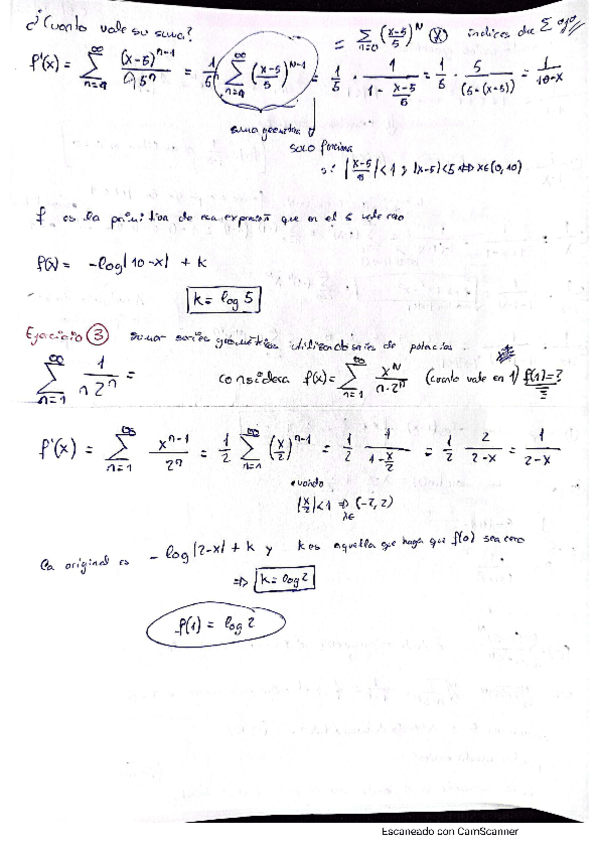 ¿Cuanto vale su suma?
= ∑_{n=0} ((x-5)/5)^N (x) indices da ∑ ojo
f'(x) = ∑_{n=1}^∞ (x-5)^{n-1}/5^n = 1/5 ∑_{n=1}^∞ ((x-5)/5)^{N-1} = 1/5 · 1/(1 - (x-5)/5) = 1/5 · 5/(5-(x-5)) = 1/(10-x)
suma geometrica
solo funciona
|(x-5)/5| < 1 ; |x-5| < 5 ⇔ x∈(0,10)
f es la primitiva de esa expresión que en el 5 vale cero
f(x) = -log|10-x| + k
k = log 5
Ejercicio 3 sumar series geométricas utilizando series de potencias.
∑_{n=1}^∞ 1/(n2^n) = considera f(x) = ∑_{n=1}^∞ x^N/(n·2^n) (cuanto vale en 1) f(1)=?
f'(x) = ∑_{n=1}^∞ x^{n-1}/2^n = 1/2 ∑_{n=1}^∞ (x/2)^{n-1} = 1/2 1/(1-x/2) = 1/2 2/(2-x) = 1/(2-x)
cuando
|x/2| < 1 ⇒ (-2,2)
x∈
La original es -log|2-x| + k y k es aquella que haga que f(0) sea cero
⇒ k = log 2
f(1) = log 2
Escaneado con CamScanner